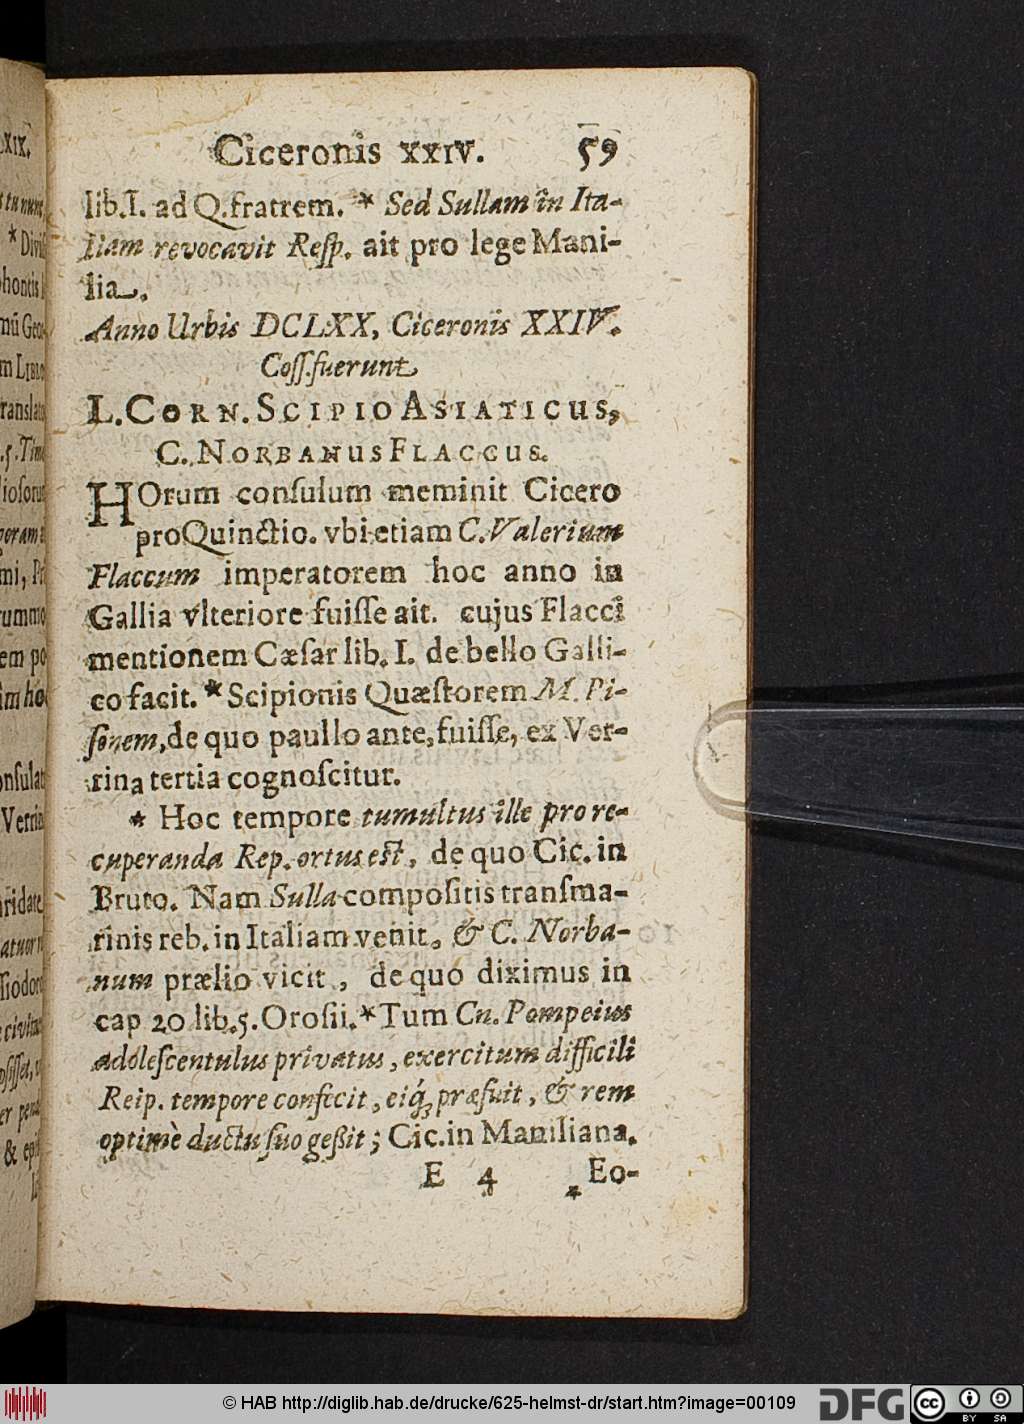 Ciceronis XXIV. 59
lib.I. ad Q.fratrem. * Sed Sullam in Ita-
liam revocavit Reſp. ait pro lege Mani-
lia.
Anno Urbis DCLXX, Ciceronis XXIV.
Coſſ.fuerunt
L. CORN. SCIPIO ASIATICUS,
C. NORBANUS FLACCUS.
HOrum conſulum meminit Cicero
pro Quinctio. vbi etiam C. Valerium
Flaccum imperatorem hoc anno in
Gallia vlteriore fuiſſe ait. cujus Flacci
mentionem Cæſar lib. I. de bello Galli-
co facit. * Scipionis Quæſtorem M. Pi-
ſonem, de quo paullo ante, fuiſſe, ex Ver-
rina tertia cognoſcitur.
* Hoc tempore tumultus ille pro re-
cuperanda Rep. ortus eſt, de quo Cic. in
Bruto. Nam Sulla compoſitis tranſma-
rinis reb. in Italiam venit, & C. Norba-
num prælio vicit, de quo diximus in
cap 20 lib. 5. Oroſii. * Tum Cn. Pompeius
adoleſcentulus privatus, exercitum difficili
Reip. tempore confecit, eiq́; præfuit, & rem
optimè ductu ſuo geßit; Cic. in Maniliana.
E 4 * Eo-
XIX.
* Diviſ
Verrin
ridate
civitas
© HAB http://diglib.hab.de/drucke/625-helmst-dr/start.htm?image=00109
DFG
cc BY SA